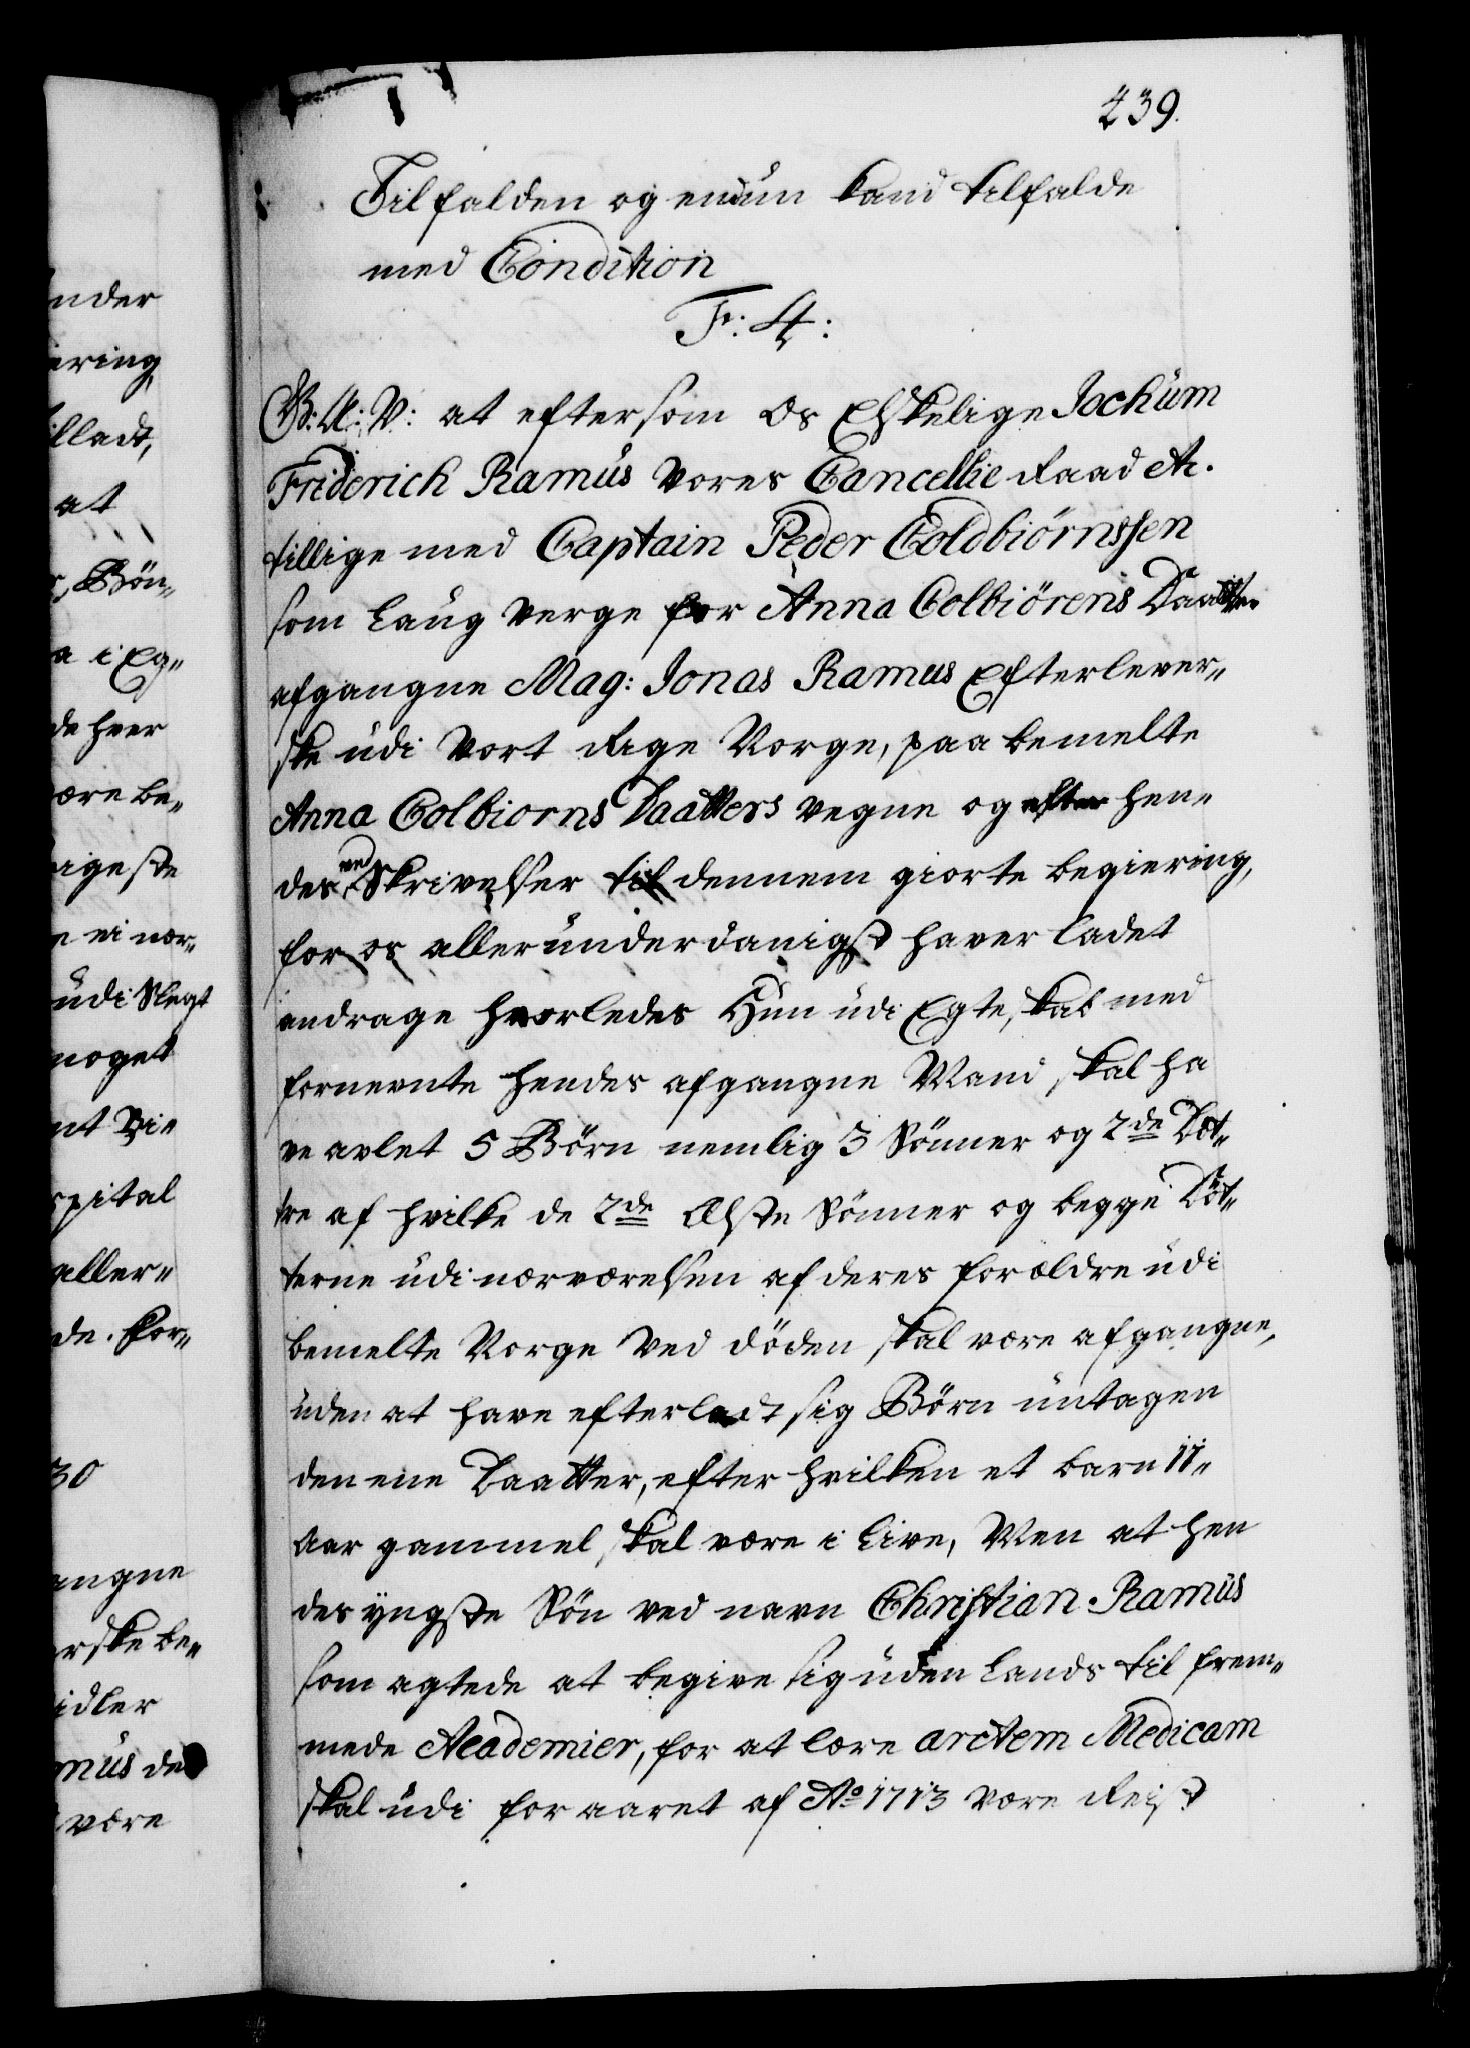 439.
Tilfalden og endnu kand tilfalde
med Condition
F: 4:
G: A: V: at eftersom Os Elskelige Jochum
Friderich Ramus Vores Cancellie Raad etc.
tillige med Captain Peder Coldbiørnssen
som Laug Verge for Anna Colbiørens Daatter
afgangne Mag: Jonas Ramus Efterlever„
ske udi Vort Rige Norge, paa bemelte
Anna Colbiorns Daatters vegne og efter hen„
des ved Skrivelser til dennem giorte begiering,
for os allerunderdanigst haver ladet
andrage hvorledes Hun udi Egteskab med
fornevnte hendes afgangne Mand skal ha
ve avlet 5 Børn nemlig 3 Sønner og 2de Døt„
tre af hvilke de 2de Ælste Sønner og begge Døt„
terne udi nærværelsen af deres forældre udi
bemelte Norge ved døden skal være afgangne,
uden at have efterladt sig Børn untagen
den ene Daatter, efter hvilken et barn 11„
Aar gammel skal være i Live, Men at hen
des yngste Søn ved navn Christian Ramus
som agtede at begive sig uden Lands til frem„
mede Academier, for at lære arctem Medicam
skal udi foraaret af Ao 1713 være Reist
nder
iering
illadt,
at
r, Børn„
a i Eg„
de hver
være be„
rigeste
e ei nær„
udi Slegt
noget
nt Vi„
spital
aller„
de. for„
30
angne
erske be„
idler
mus de
være